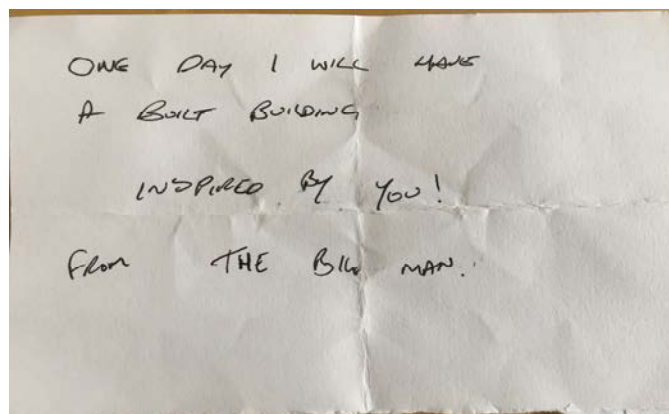 ONE DAY I WILL HAVE
A BUILT BUILDING
INSPIRED BY YOU!
FROM THE BIG MAN.